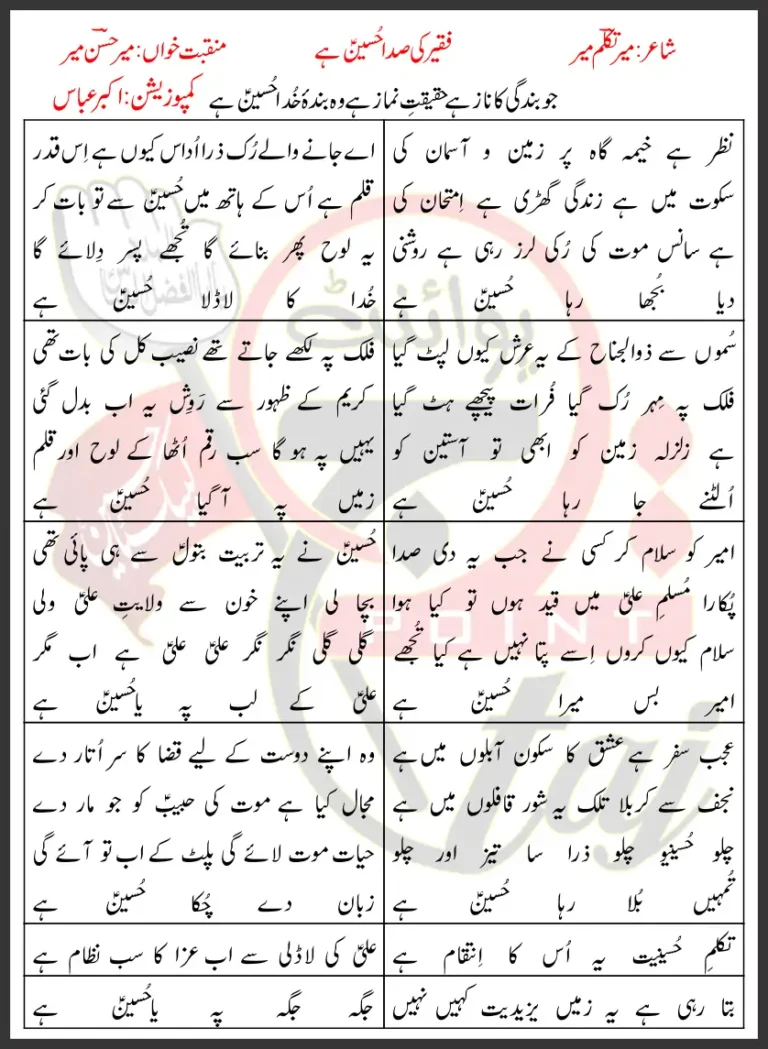 شاعر: میر تکلم میر
فقیر کی صدا حُسینؑ ہے
منقبت خواں: میر حسن میر
جو بندگی کا ناز ہے حقیقتِ نماز ہے وہ بندۂ خُدا حُسینؑ ہے
کمپوزیشن: اکبر عباس
نظر ہے خیمہ گاہ پر زمین و آسمان کی
سکوت میں ہے زندگی گھڑی ہے اِمتحان کی
ہے سانس موت کی رُکی لرز رہی ہے روشنی
دیا بُجھا رہا حُسینؑ ہے
اے جانے والے رُک ذرا اُداس کیوں ہے اِس قدر
قلم ہے اُس کے ہاتھ میں حُسینؑ سے تو بات کر
یہ لوح پھر بنائے گا تُجھے پسر دِلائے گا
خُدا کا لاڈلا حُسینؑ ہے
سُموں سے ذوالجناح کے یہ عرش کیوں لپٹ گیا
فلک پہ مِہر رُک گیا فُرات پیچھے ہٹ گیا
ہے زلزلہ زمین کو ابھی تو آستین کو
اُلٹنے جا رہا حُسینؑ ہے
فلک پہ لکھے جاتے تھے نصیب کل کی بات تھی
کریم کے ظہور سے رَوِش یہ اب بدل گئی
یہیں پہ ہو گا سب رقم اُٹھا کے لوح اور قلم
زمیں پہ آ گیا حُسینؑ ہے
امیر کو سلام کر کسی نے جب یہ دی صدا
پُکارا مُسلمِ علیؑ میں قید ہوں تو کیا ہوا
سلام کیوں کروں اِسے پتا نہیں ہے کیا تُجھے
امیر بس میرا حُسینؑ ہے
حُسینؑ نے یہ تربیت بتولؑ سے ہی پائی تھی
بچا لی اپنے خون سے ولایتِ علیؑ ولی
گلی گلی نگر نگر علیؑ علیؑ ہے اب مگر
علیؑ کے لب پہ یا حُسینؑ ہے
عجب سفر ہے عشق کا سکون آبلوں میں ہے
نجف سے کربلا تلک یہ شور قافلوں میں ہے
چلو حُسینیو چلو ذرا سا تیز اور چلو
تُمہیں بُلا رہا حُسینؑ ہے
وہ اپنے دوست کے لیے قضا کا سر اُتار دے
مجال کیا ہے موت کی حبیبؑ کو جو مار دے
حیات موت لائے گی پلٹ کے اب تو آئے گی
زبان دے چُکا حُسینؑ ہے
تکلمِ حُسینیت یہ اُس کا اِنتقام ہے
علیؑ کی لاڈلی سے اب عزا کا سب نظام ہے
بتا رہی ہے یہ زمیں یزیدیت کہیں نہیں
جگہ جگہ پہ یا حُسینؑ ہے
پوائنٹ
POINT
taj